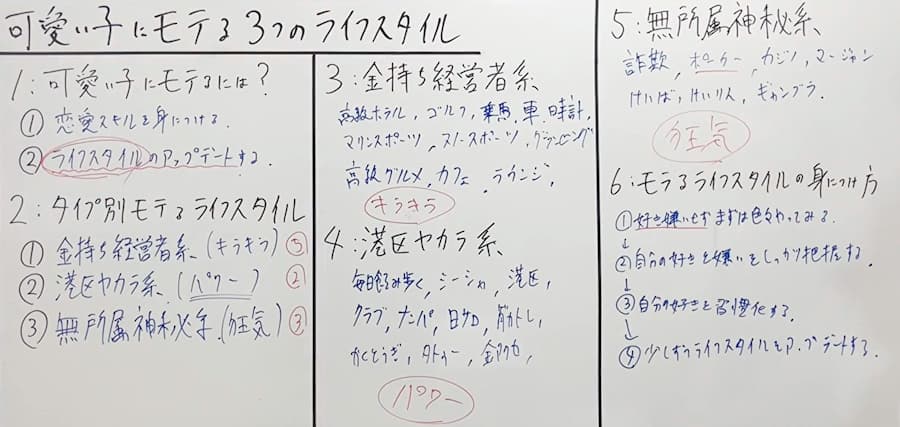 可愛い子にモテる3つのライフスタイル
1:可愛い子にモテるには?
① 恋愛スキルを身につける.
② ライフスタイルのアップデートする.
2:タイプ別モテるライフスタイル
① 金持ち経営者系(キラキラ) ③
② 港区ヤカラ系(パワー) ②
③ 無所属神秘系(狂気) ③
3:金持ち経営者系
高級ホテル, ゴルフ, 乗馬, 車, 時計,
マリンスポーツ, スノースポーツ, グランピング
高級グルメ, カフェ, ラウンジ,
キラキラ
4:港区ヤカラ系
毎日飲み歩く, シーシャ, 港区,
クラブ, ナンパ, 日サロ, 筋トレ,
かくとうぎ, タトゥー,
パワー
5:無所属神秘系
詐欺, ポーカー, カジノ, マージャン
けいば, けいりん, ギャンブラ.
狂気
6:モテるライフスタイルの身につけ方
① 好き嫌いせずまずは色々やってみる.
↓
② 自分の好きと嫌いをしっかり把握する.
↓
③ 自分の好きを習慣化する.
↓
④ 少しずつライフスタイルをアップデートする.